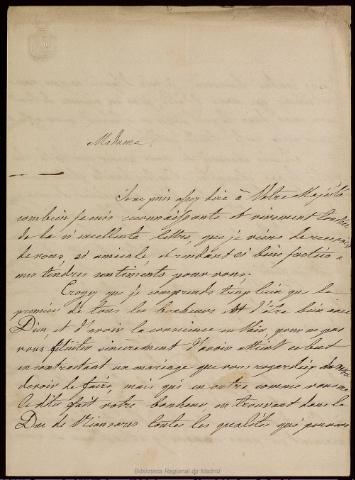 Madame
Je ne puis assez dire à Votre Majesté
combien je suis reconnaissante et vivement touchée
de la si excellente lettre, que je viens de recevoir
de vous, si amicale, et rendant si bien justice à
mes tendres sentiments pour vous;
Croyez que je comprends trop bien que le
premier de tous les bonheurs est d'être bien avec
Dieu et d'avoir la conscience en paix, pour ne pas
vous féliciter sincèrement d'avoir atteint ce but
en contractant un mariage que vous regardiez du
devoir de faire, mais qui en outre comme vous me
le dites fait votre bonheur en trouvant dans le
Duc de Rianzares toutes les qualités qui peuvent
Biblioteca Regional de Madrid